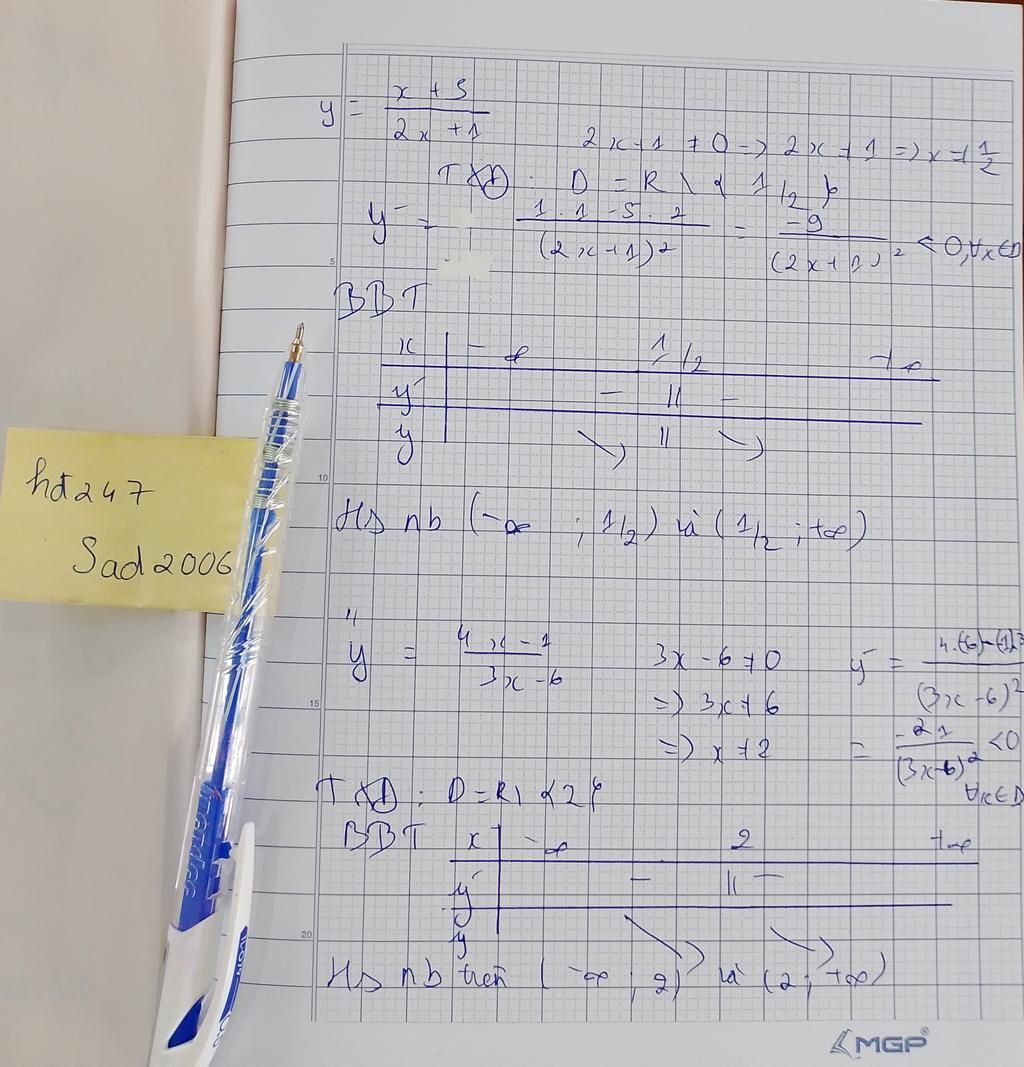 y = (x + 5)/(2x + 1)
2x + 1 ≠ 0 => 2x ≠ 1 => x ≠ 1/2
TXĐ : D = R \ { 1/2 }
y' = (1 . 1 - 5 . 2)/(2x + 1)² = -9/(2x + 1)² < 0, ∀x ∈ D
BBT
x | -∞ 1/2 +∞
y' | - || -
y | ↘ || ↘
HS nb (-∞ ; 1/2) và (1/2 ; +∞)
hđ247
Sad2006
4
y = (4x - 1)/(3x - 6)
3x - 6 ≠ 0
=> 3x ≠ 6
=> x ≠ 2
y' = (4.(-6) - (-1).3)/(3x - 6)²
= -21/(3x - 6)² < 0
∀x ∈ D
TXĐ : D = R \ {2}
BBT
x | -∞ 2 +∞
y' | - || -
y ↘ ↘
HS nb trên (-∞ ; 2) và (2 ; +∞)
5
10
15
20
Trendee
MGP